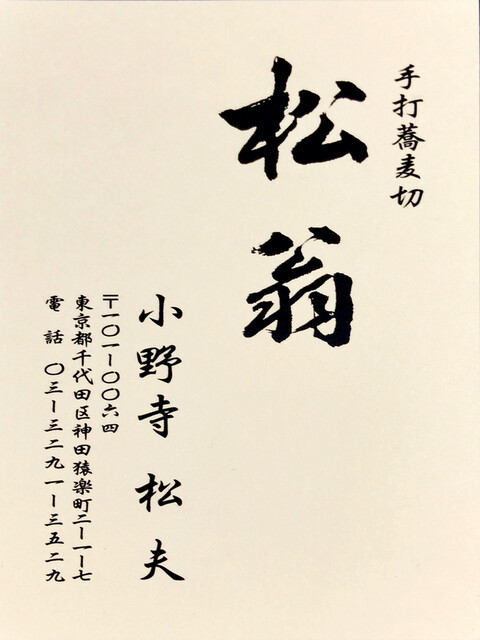 手打蕎麦切
松翁
小野寺 松夫
〒一〇一ー〇〇六四
東京都千代田区神田猿楽町二ー一ー七
電話 〇三ー三二九一ー三五二九